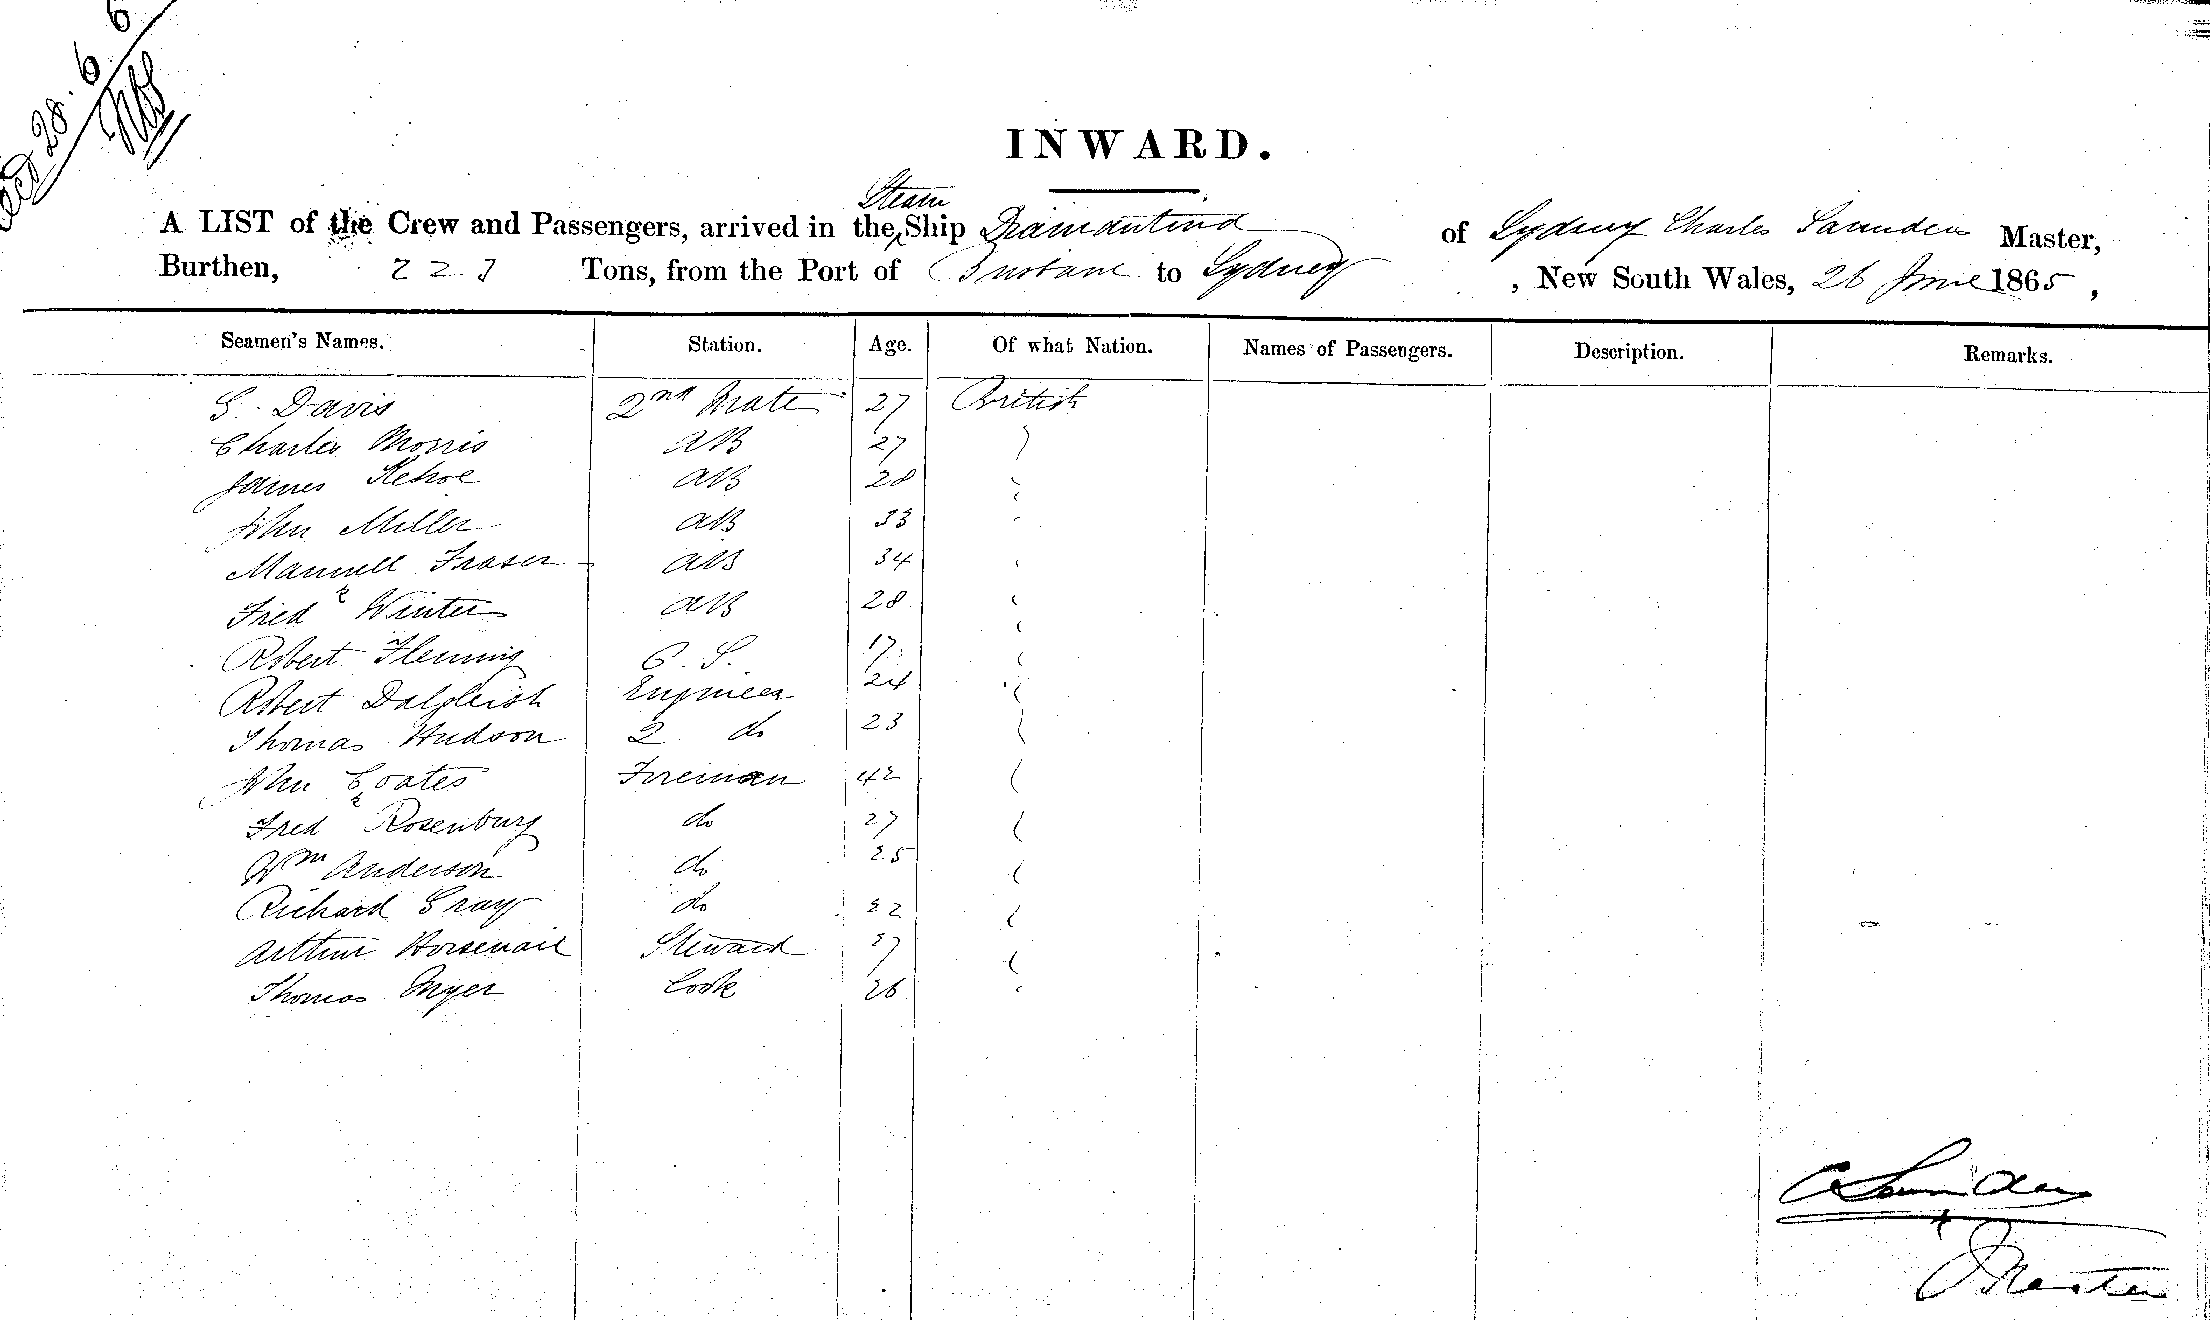 28.6.6
INWARD.
Steam
A LIST of the Crew and Passengers, arrived in the Ship Diamantina of Sydney Charles Saunders Master,
Burthen, 223 Tons, from the Port of Brisbane to Sydney, New South Wales, 26 June 1865,
Seamen's Names. Station. Age. Of what Nation. Names of Passengers. Description. Remarks.
G. Davis 2nd Mate 27 British
Charles Morris AB 27
James Kehoe AB 28
John Miller AB 33
Manuell Fraser AB 34
Fredk Winter AB 28
Robert Fleming O.S. 17
Robert Dalgleish Engineer 24
Thomas Hudson 2 do 23
John Coates Fireman 42
Fredk Rosenburg do 27
Wm Anderson do 25
Richard Gray do 22
Arthur Horsenail Steward 27
Thomas Myer Cook 26
C Saunders
Master